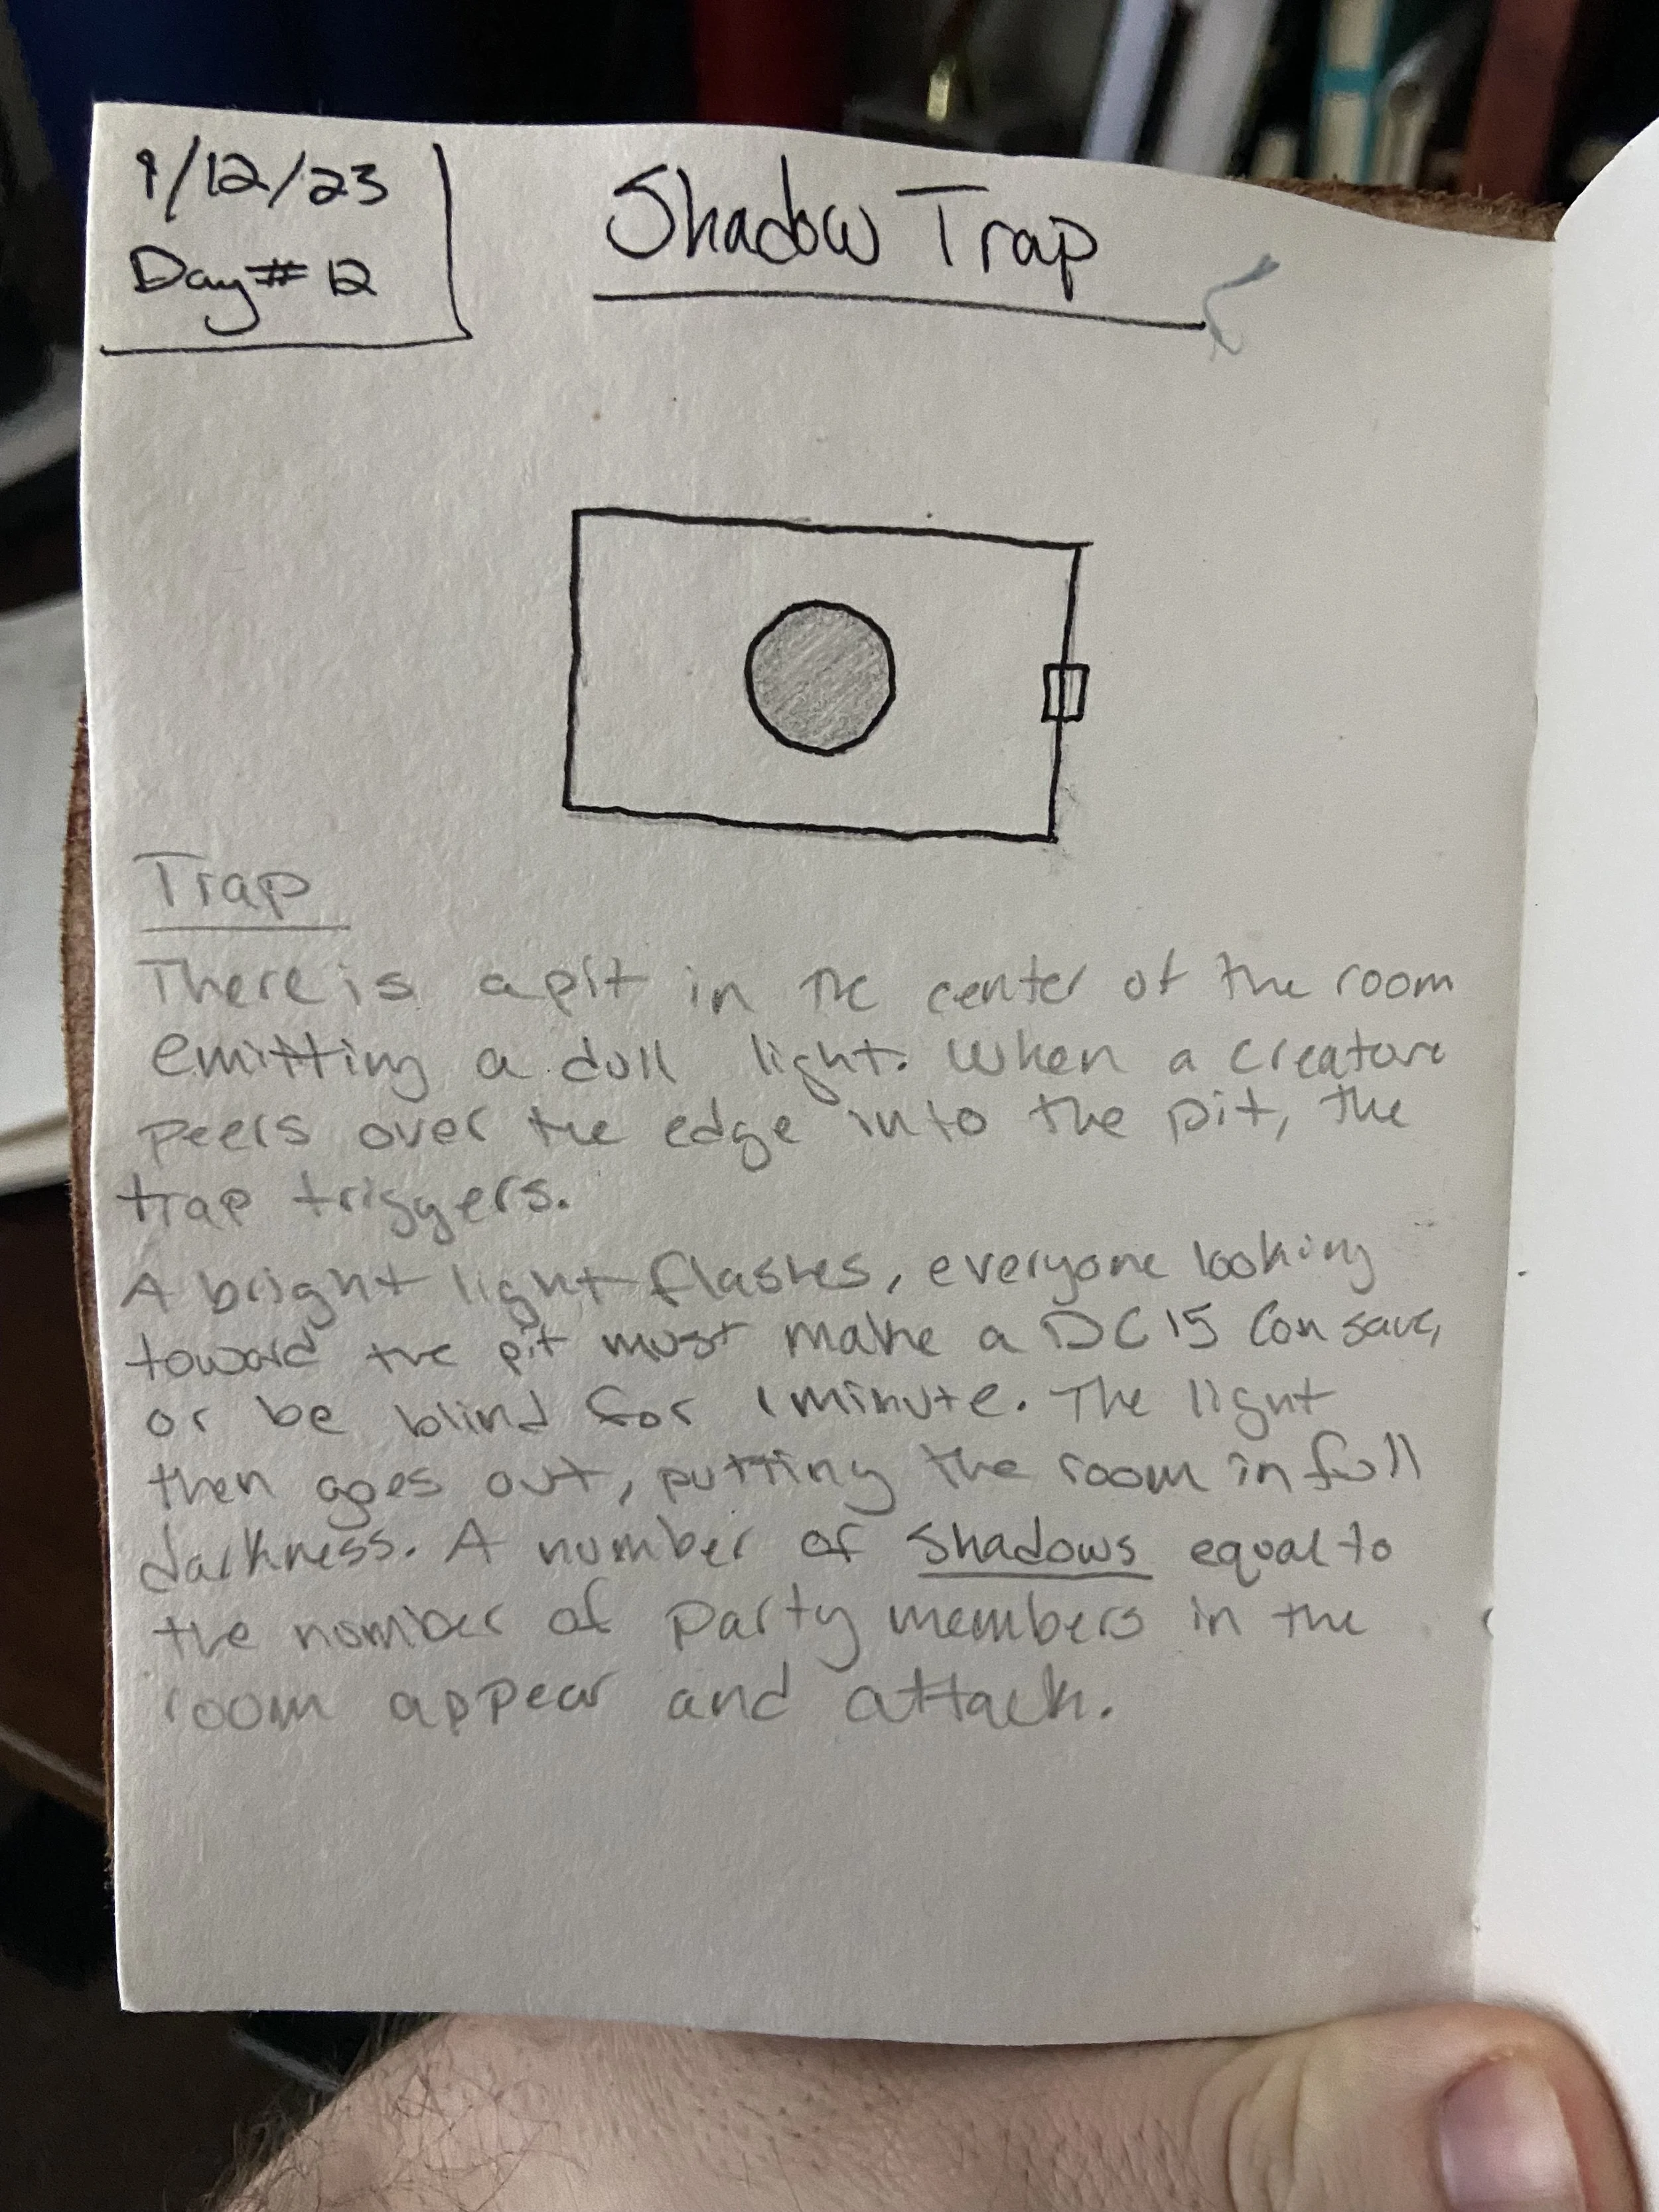 1/12/23
Day # 12
Shadow Trap
Trap
There is a pit in the center of the room
emitting a dull light. When a creature
peers over the edge into the pit, the
trap triggers.
A bright light flashes, everyone looking
toward the pit must make a DC 15 Con save,
or be blind for 1 minute. The light
then goes out, putting the room in full
darkness. A number of Shadows equal to
the number of party members in the
room appear and attack.